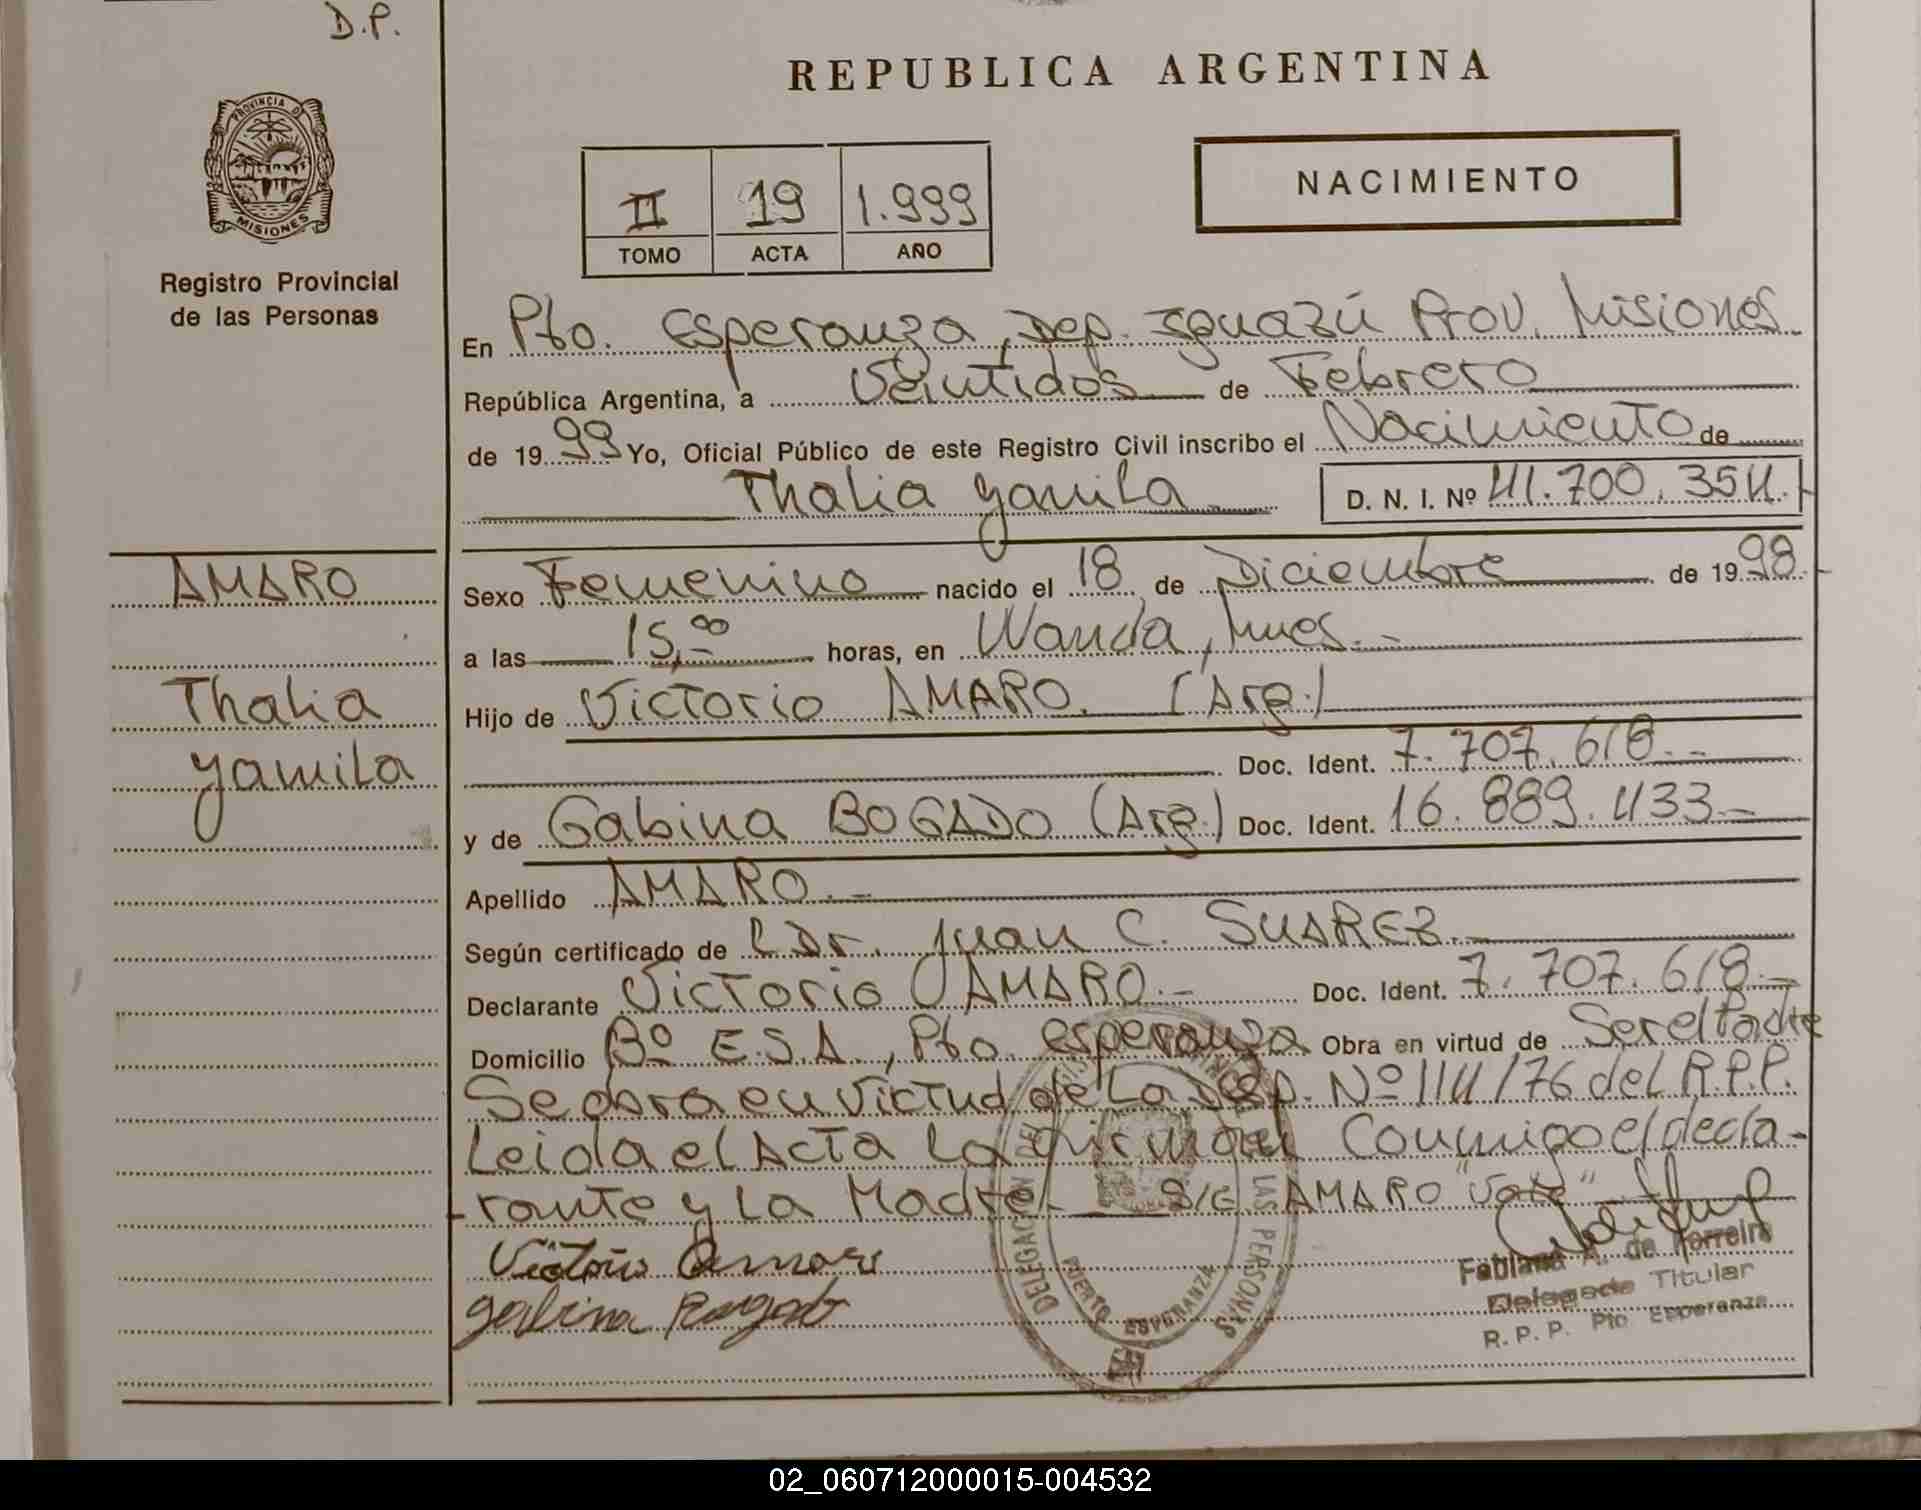 D.P.
REPUBLICA ARGENTINA
PROVINCIA D
MISIONES
Registro Provincial
de las Personas
II 19 1.999
TOMO ACTA AÑO
NACIMIENTO
En Pto. Esperanza, Dep. Iguazú Prov. Misiones
República Argentina, a Veintidos de Febrero
de 1999 Yo, Oficial Público de este Registro Civil inscribo el Nacimiento de
Thalia Yamila D. N. I. Nº 41.700.354.
AMARO
Thalia
Yamila
Sexo Femenino nacido el 18 de Diciembre de 1998
a las 15,00 horas, en Wanda, Mnes.-
Hijo de Victorio AMARO. (Arg.)
Doc. Ident. 7.707.618.-
y de Gabina BOGADO (Arg.) Doc. Ident. 16.889.433.-
Apellido AMARO.-
Según certificado de Dr. Juan C. SUAREZ.-
Declarante Victorio AMARO.- Doc. Ident. 7.707.618.-
Domicilio Bº E.S.A., Pto. esperanza Obra en virtud de Ser el Padre
Se obra en virtud de La Disp. Nº 114/76 del R.P.P.
Leida el Acta La firman Conmigo el decla-
rante y La Madre.- S/C AMARO "Vale"
Victorio Amaro
Gabina Bogado
DELEGACION DEL LAS PERSONAS
PUERTO ESPERANZA
Fabiana A. de Ferreira
Delegada Titular
R. P. P. Pto Esperanza
02_060712000015-004532